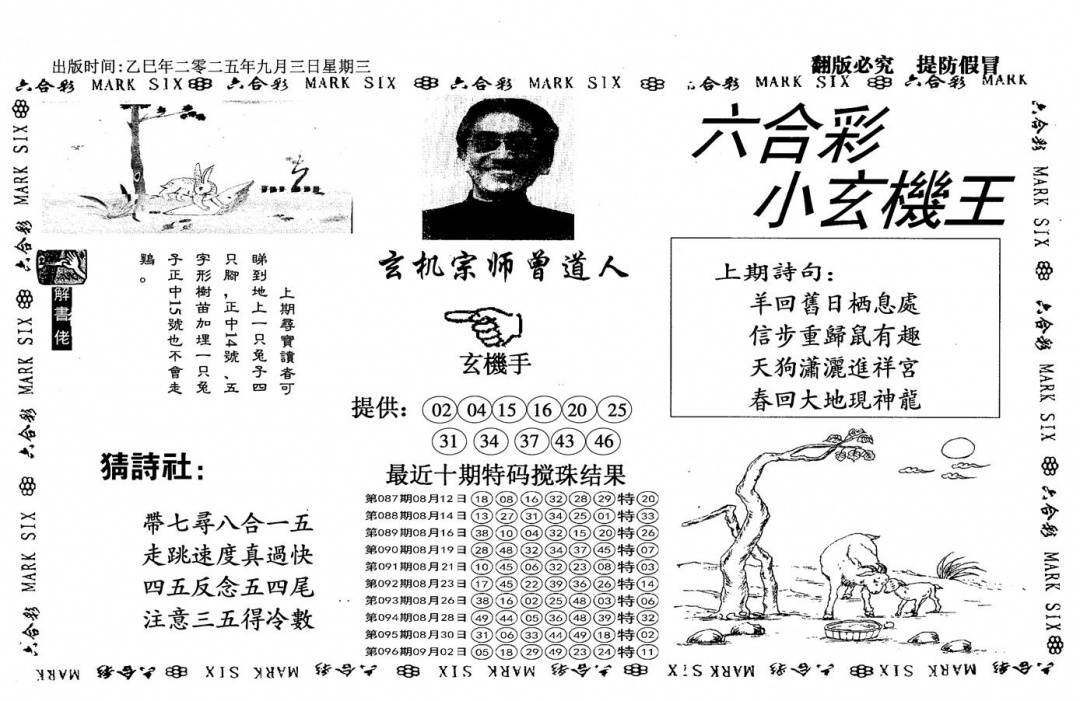 出版时间:乙巳年二零二五年九月三日星期三
翻版必究 提防假冒
六合彩 MARK SIX 六合彩 MARK SIX 六合彩 MARK SIX 六合彩 MARK SIX 六合彩 MARK
六合彩
小玄機王
玄机宗师曾道人
解書佬
上期尋寶讀者可
睇到地上一只兔子四
只腳，正中14號、五
字形樹苗加埋一只兔
子正中15號也不會走
鷄。
上期詩句：
羊回舊日栖息處
信步重歸鼠有趣
天狗瀟灑進祥宮
春回大地現神龍
玄機手
提供： 02 04 15 16 20 25
31 34 37 43 46
猜詩社：
帶七尋八合一五
走跳速度真過快
四五反念五四尾
注意三五得冷數
最近十期特码搅珠结果
第087期08月12日 18 08 16 32 28 29 特 20
第088期08月14日 13 27 31 34 25 01 特 33
第089期08月16日 38 10 04 32 15 20 特 26
第090期08月19日 28 48 32 34 37 45 特 07
第091期08月21日 10 45 06 32 23 08 特 03
第092期08月23日 17 45 22 39 36 26 特 14
第093期08月26日 38 16 02 25 48 03 特 06
第094期08月28日 49 44 05 36 48 39 特 32
第095期08月30日 31 06 33 44 49 18 特 02
第096期09月02日 05 18 29 49 23 24 特 11
六合彩 MARK SIX 六合彩 MARK SIX 六合彩 MARK SIX 六合彩
六合彩 MARK SIX 六合彩 MARK SIX 六合彩 MARK SIX
MARK 六合彩 SIX MARK 六合彩 SIX MARK 六合彩 SIX MARK 六合彩 SIX MARK 六合彩 SIX MARK 六合彩